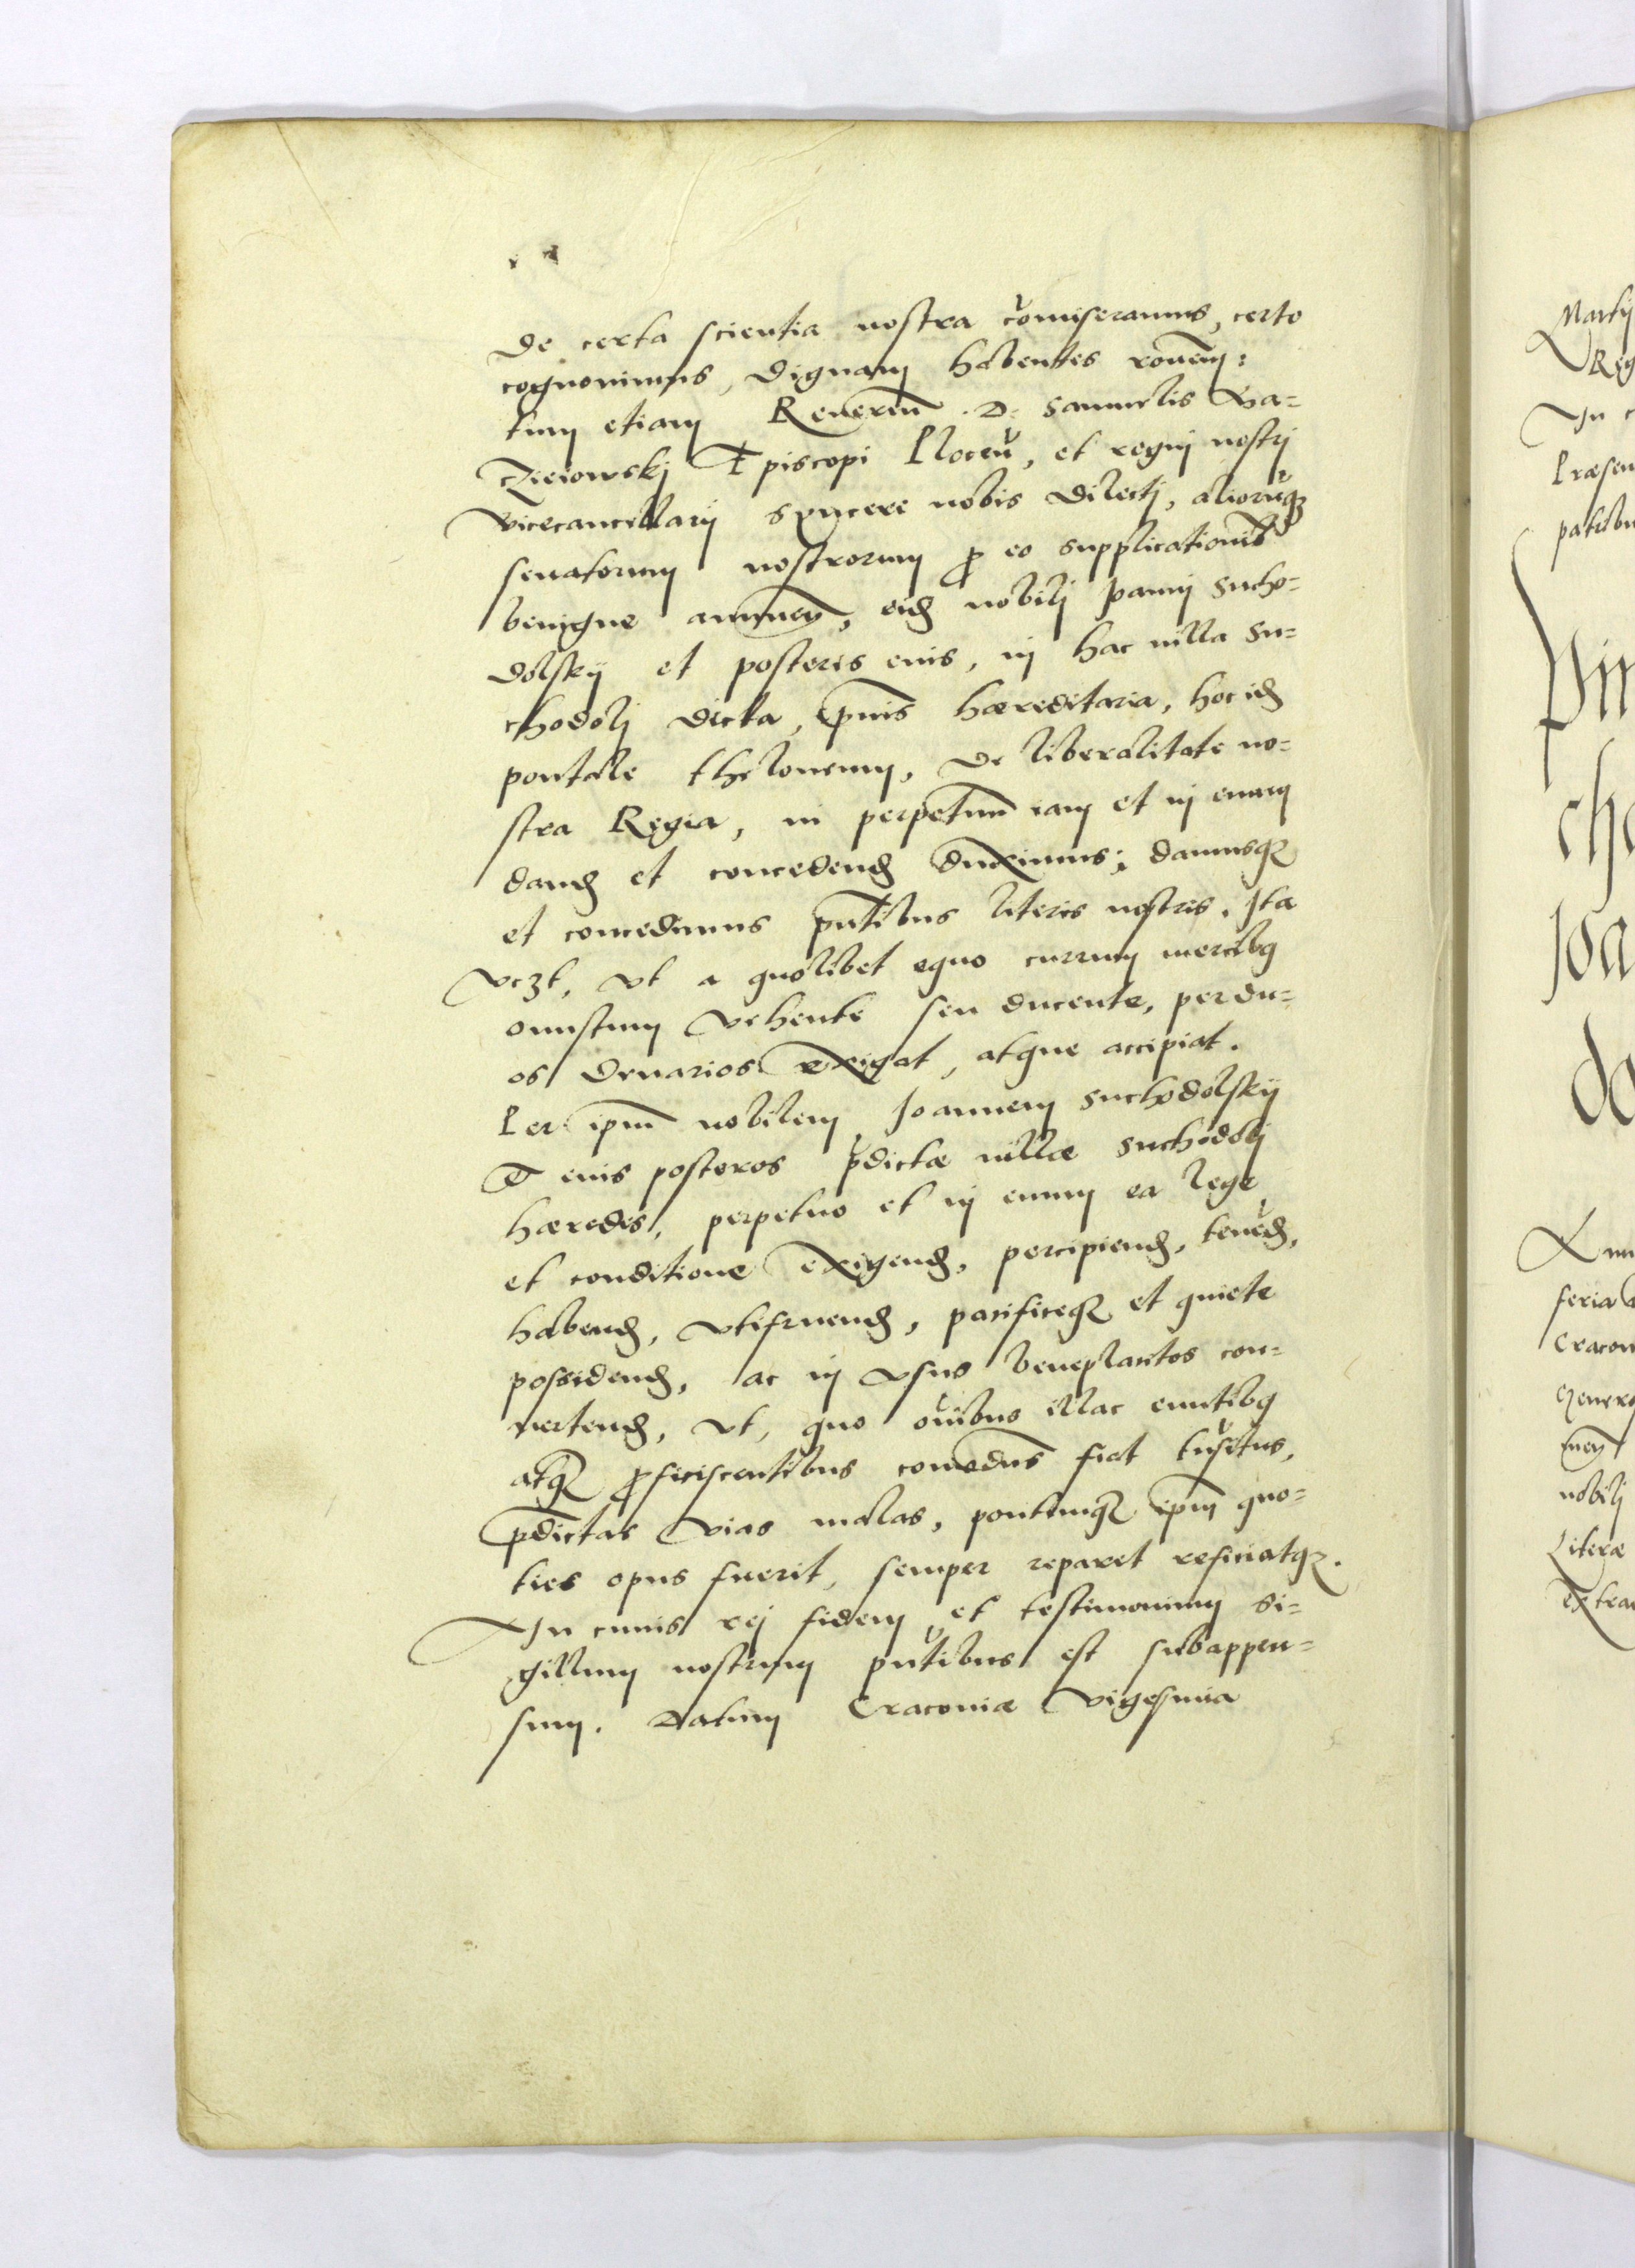 de certa scientia nostra com̄iseramus, certo
cognouimus, dignam habentes rōnem:
tum etiam Reueren̄. D. Samuelis Ma=
czieiowskj Episcopi Plocen̄, et regnj nostrj
Vicecancellarij syncere nobis dilectj, aliorūq₃
senatorum nostrorum ꝓ eo supplicationib⁹
benigne annuen̄, eid. nobilj Joannj Sucho=
dolskij et posteris eius, in hac uilla Su=
chodolj dicta, ipsius hæreditaria, hoc id.
pontale theloneum, de liberalitate no=
stra Regia, in perpetuū iam et in æuum
dand. et concedend. duximus; damusq₃
et concedimus pn̄tibus literis nostris. Ita
vczt, vt a quolibet equo currum mercib⁹
onustum vehente seu ducente, per du=
os denarios exigat, atque accipiat.
Per ipm̄ nobilem Joannem Suchodolskij
et eius posteros p̄dictæ uillæ Suchodolj
hæredes, perpetuo et in æuum ea lege
et conditione exigend., percipiend., tenēd.,
habend., vtifruend., pacificeq₃ et quiete
possidend., ac in vsus beneplacitos con=
uertend., vt, quo om̄ibus illac euntib⁹
atq₃ ꝓficiscentibus comodus fiat trāsitus,
p̄dictas vias malas, pontemq₃ ipm̄ quo=
ties opus fuerit, semper reparet reficiatq₃.
In cuius rej fidem et testimonium si=
gillum nostrum pn̄tibus est subappen=
sum. Datum Cracouiæ Vigesima
Martij
Reg
In c
Præsen
patibu
Vin
cho
Joa
da
feria
Cracou
Genero
men̄
nobilj
Literæ
extra